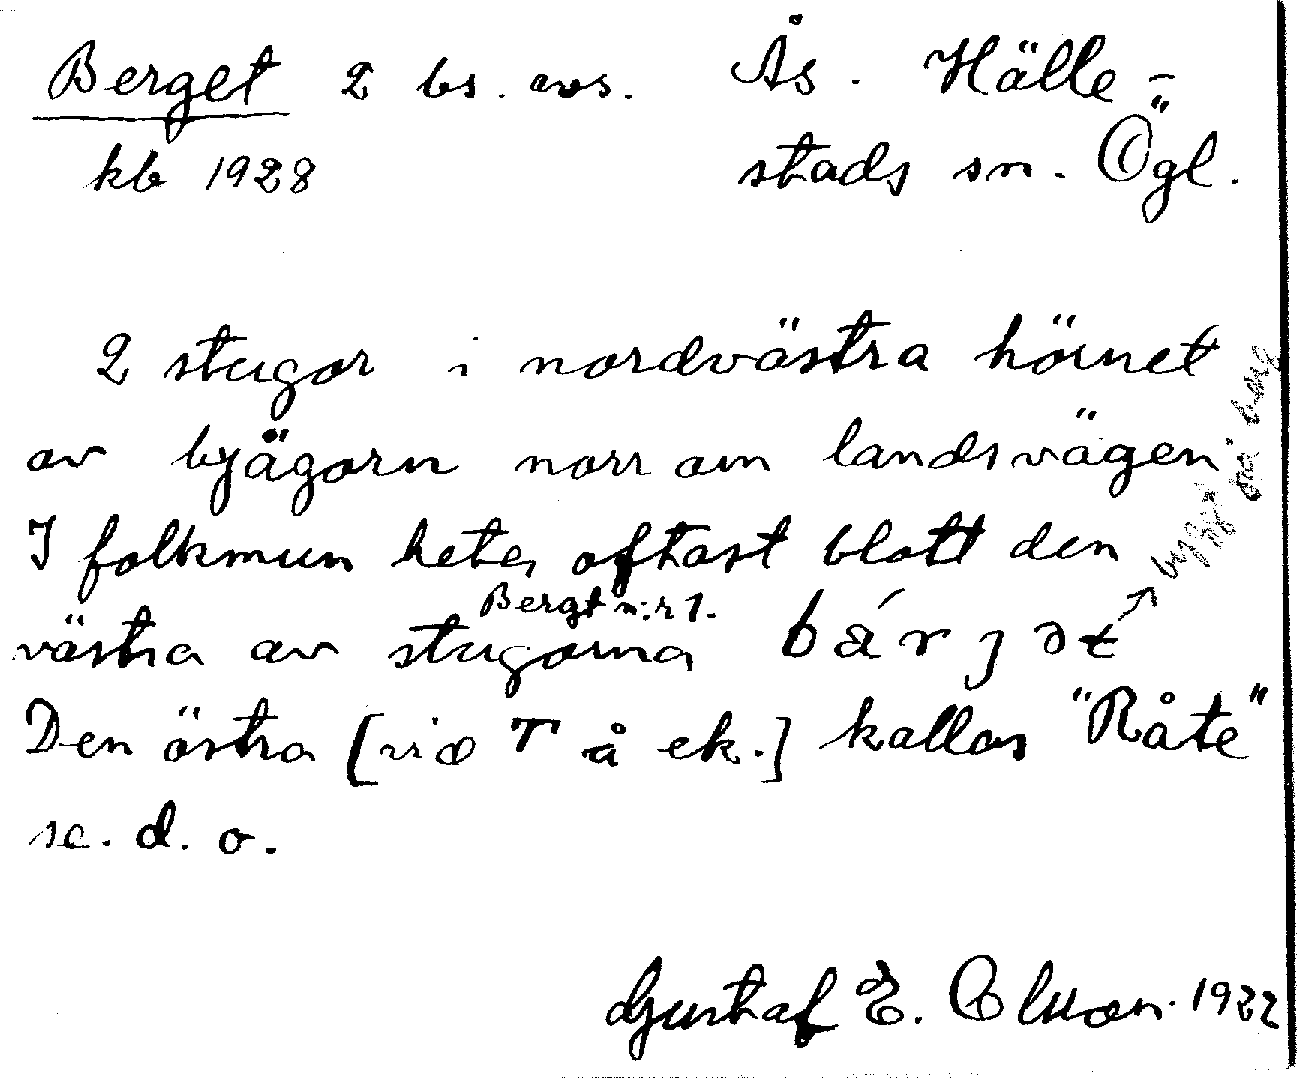 Berget 2 bs. avs. Ås. Hälle-
kb 1928 stads sn. Ögl.
2 stugor i nordvästra hörnet
av byägorn norr om landsvägen
I folkmun heter oftast blott den
Bergt n:r 1.
västra av stugorna bárjət
→ byggt på berg
Den östra [vid T å ek.] kallas "Råte"
se. d. o.
Gustaf E. Olsson. 1922